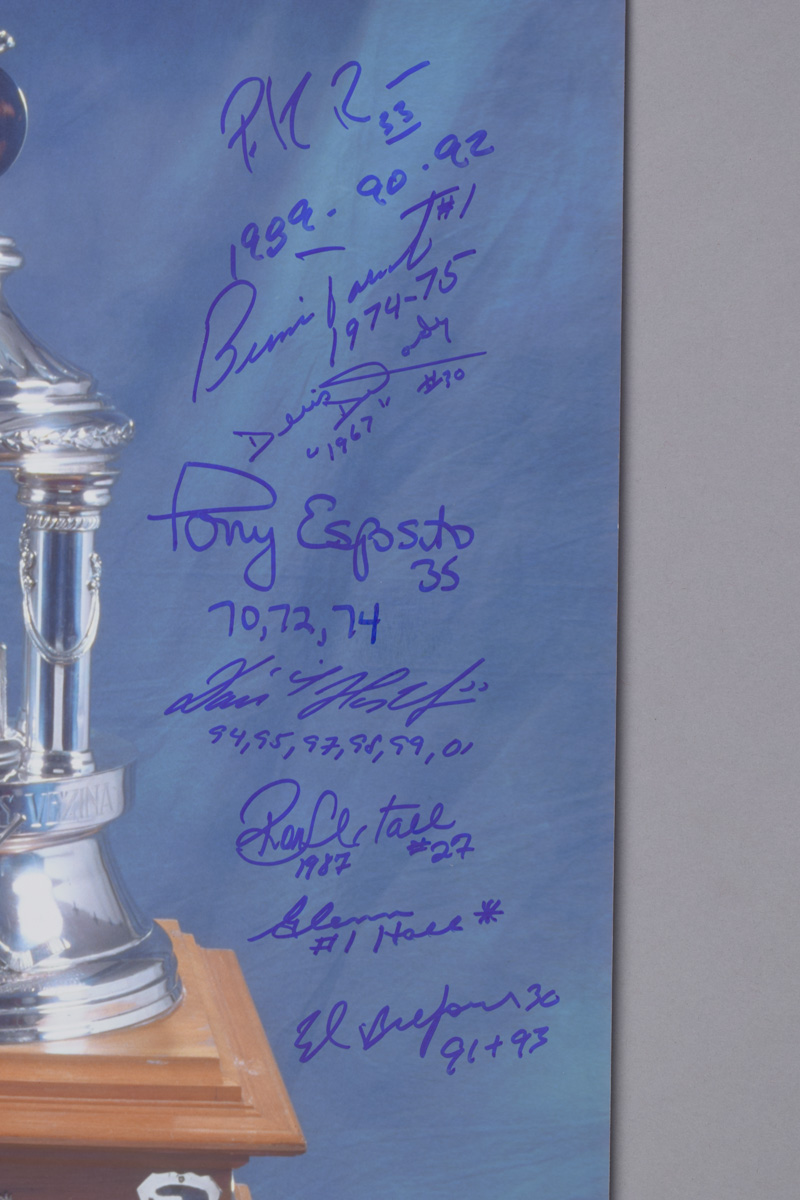 P. R 33
1989. 90. 92
Bernie Parent #1
1974-75
Denis DeJordy
"1967" #30
Tony Esposito
35
70, 72, 74
94, 95, 97, 98, 99, 01
Ron Hextall
1987 #27
Glenn
#1 Hall *
Ed Belfour 30
91 + 93
S VEZINA